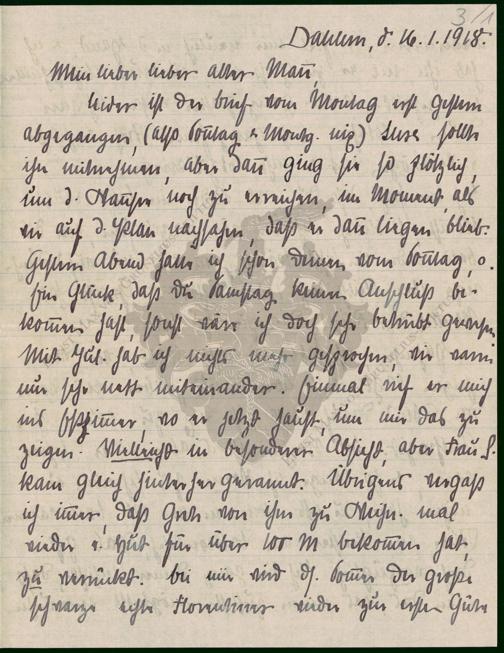 3/1
Dahlem, d. 16.1.1918.
Mein lieber lieber alter Mañ,
leider ist der brief vom Montag erst gestern
abgegangen, (also Soñtag & Montg. nix) Suse sollte
ihn mitnehmen, aber dañ ging sie so plötzlich,
um d. noch zu erreichen, im Moment, als
wir auf d. Plan nachsahen, daß er dañ liegen blieb.
Gestern Abend hatte ich schon deinen vom Soñtag, o.
Ein Glück, daß du Samstag keinen Anschluß be-
kom̄en hast, sonst wäre ich doch sehr betrübt gewesen
Mit hab ich nichts mehr gesprochen, wir waren
nur sehr nett miteinander. Einmal rief er mich
ins, wo er jetzt haust, um mir das zu
zeigen. Vielleicht in besonderer Absicht, aber Frau S.
kam gleich hinterher gerannt. Übrigens vergaß
ich im̄er, daß Grete von ihm zu Weihn. mal
wieder e. Hut für über 100 M bekom̄en hat,
zu verrückt. bei mir wird ds. Som̄er der große
schwarze echte Florentiner wieder zu ersten Ehren